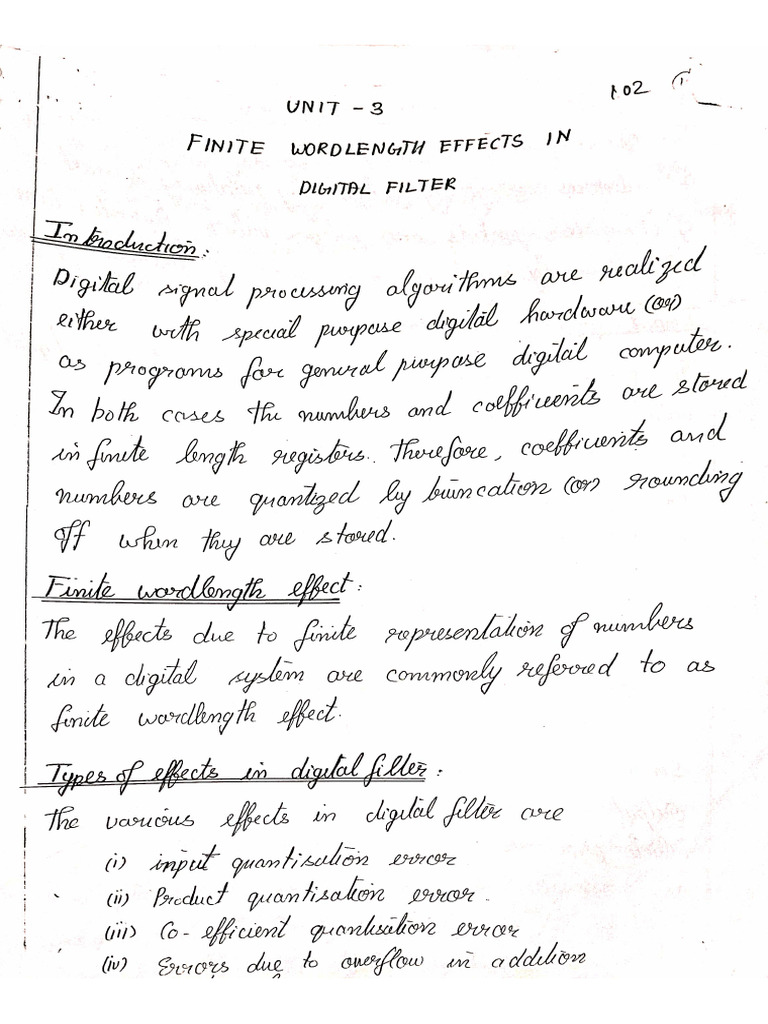 102
UNIT - 3
FINITE WORDLENGTH EFFECTS IN
DIGITAL FILTER
Introduction:
Digital signal processing algorithms are realized
either with special purpose digital hardware (or)
as programs for general purpose digital computer.
In both cases the numbers and coefficients are stored
in finite length registers. Therefore, coefficients and
numbers are quantized by truncation (or) rounding
off when they are stored.
Finite wordlength effect:
The effects due to finite representation of numbers
in a digital system are commonly referred to as
finite wordlength effect.
Types of effects in digital filter:
The various effects in digital filter are
(i) input quantisation error
(ii) Product quantisation error.
(iii) Co-efficient quantisation error
(iv) Errors due to overflow in addition